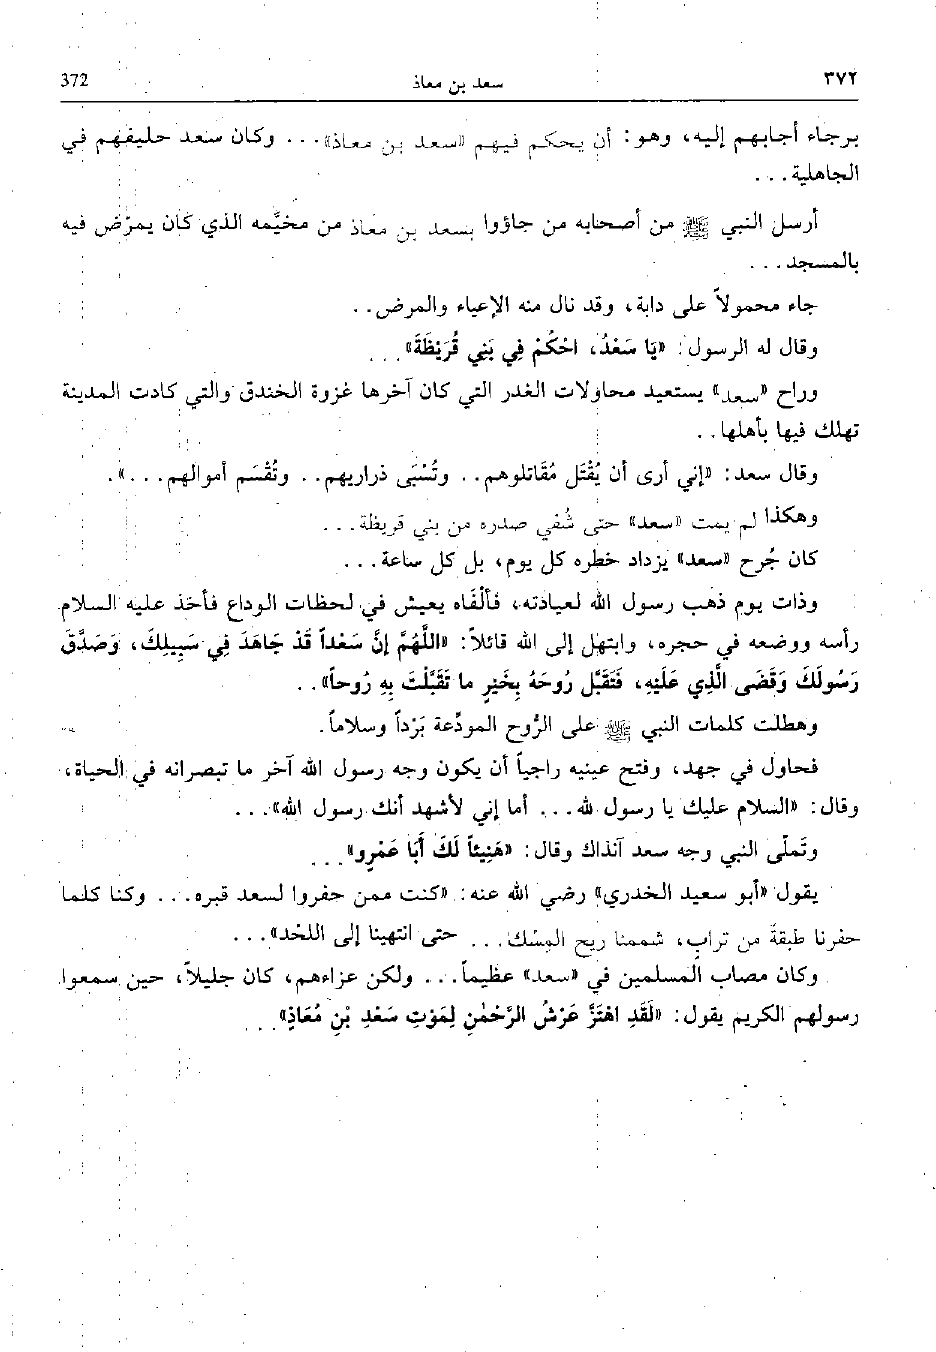 ٣٧٢ سعد بن معاذ 372
برجاء أجابهم إليه، وهو: أن يحكم فيهم «سعد بن معاذ»... وكان سعد حليفهم في
الجاهلية...
أرسل النبي ﷺ من أصحابه من جاؤوا بسعد بن معاذ من مخيَّمه الذي كان يمرَّض فيه
بالمسجد...
جاء محمولاً على دابة، وقد نال منه الإعياء والمرض..
وقال له الرسول: «يَا سَعْدُ، احْكُمْ فِي بَنِي قُرَيْظَةَ»...
وراح «سعد» يستعيد محاولات الغدر التي كان آخرها غزوة الخندق والتي كادت المدينة
تهلك فيها بأهلها..
وقال سعد: «إني أرى أن يُقْتَل مُقَاتلوهم.. وتُسْبَى ذراريهم.. وتُقْسَم أموالهم...».
وهكذا لم يمت «سعد» حتى شُفي صدره من بني قريظة...
كان جُرح «سعد» يزداد خطره كل يوم، بل كل ساعة...
وذات يوم ذهب رسول الله لعيادته، فألْفَاه يعيش في لحظات الوداع فأخذ عليه السلام
رأسه ووضعه في حجره، وابتهل إلى الله قائلاً: «اللَّهُمَّ إِنَّ سَعْداً قَدْ جَاهَدَ فِي سَبِيلِكَ، وَصَدَّقَ
رَسُولَكَ وَقَضَى الَّذِي عَلَيْهِ، فَتَقَبَّل رُوحَهُ بِخَيْرِ ما تَقَبَّلْتَ بِهِ رُوحاً»..
وهطلت كلمات النبي ﷺ على الرُّوح المودِّعة بَرْداً وسلاماً.
فحاول في جهد، وفتح عينيه راجياً أن يكون وجه رسول الله آخر ما تبصرانه في الحياة،
وقال: «السلام عليك يا رسول لله... أما إني لأشهد أنك رسول الله»...
وتَملَّى النبي وجه سعد آنذاك وقال: «هَنِيئاً لَكَ أَبَا عَمْرٍو»...
يقول «أبو سعيد الخدري» رضي الله عنه: «كنت ممن حفروا لسعد قبره... وكنا كلما
حفرنا طبقةً من ترابٍ، شممنا ريح المِسْك... حتى انتهينا إلى اللحْد»...
وكان مصاب المسلمين في «سعد» عظيماً... ولكن عزاءهم، كان جليلاً، حين سمعوا
رسولهم الكريم يقول: «لَقَدِ اهْتَزَّ عَرْشُ الرَّحْمٰنِ لِمَوْتِ سَعْدِ بْنِ مُعَاذٍ»...